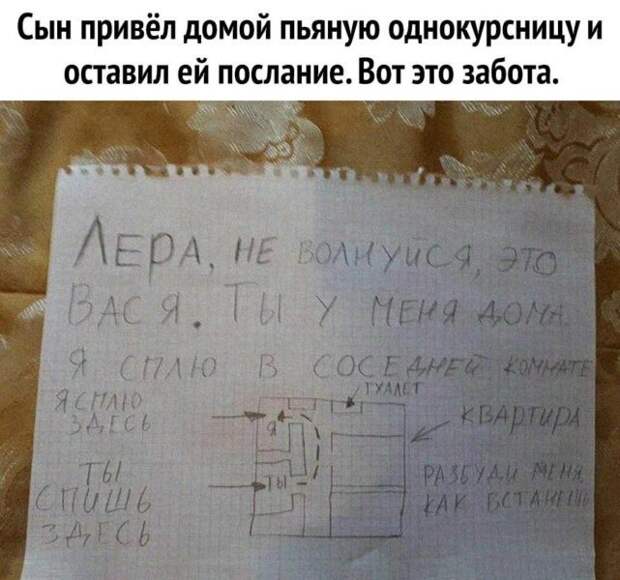 Сын привёл домой пьяную однокурсницу и
оставил ей послание. Вот это забота.
ЛЕРА, НЕ ВОЛНУЙСЯ, ЭТО
ВАСЯ. ТЫ У МЕНЯ ДОМА.
Я СПЛЮ В СОСЕДНЕЙ КОМНАТЕ
ТУАЛЕТ
Я СПЛЮ
ЗДЕСЬ
Я
КВАРТИРА
ТЫ
СПИШЬ
ЗДЕСЬ
ТЫ
РАЗБУДИ МЕНЯ
КАК ВСТАНЕШЬ